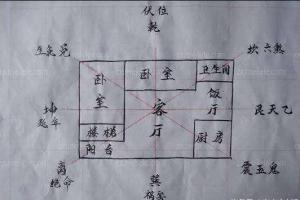 伏位
乾
生氣兑
坎六煞
卧室
卧室
卫生间
饭厅
客厅
坤
延年
艮天乙
楼梯
阳台
厨房
离
绝命
巽
祸害
震五鬼